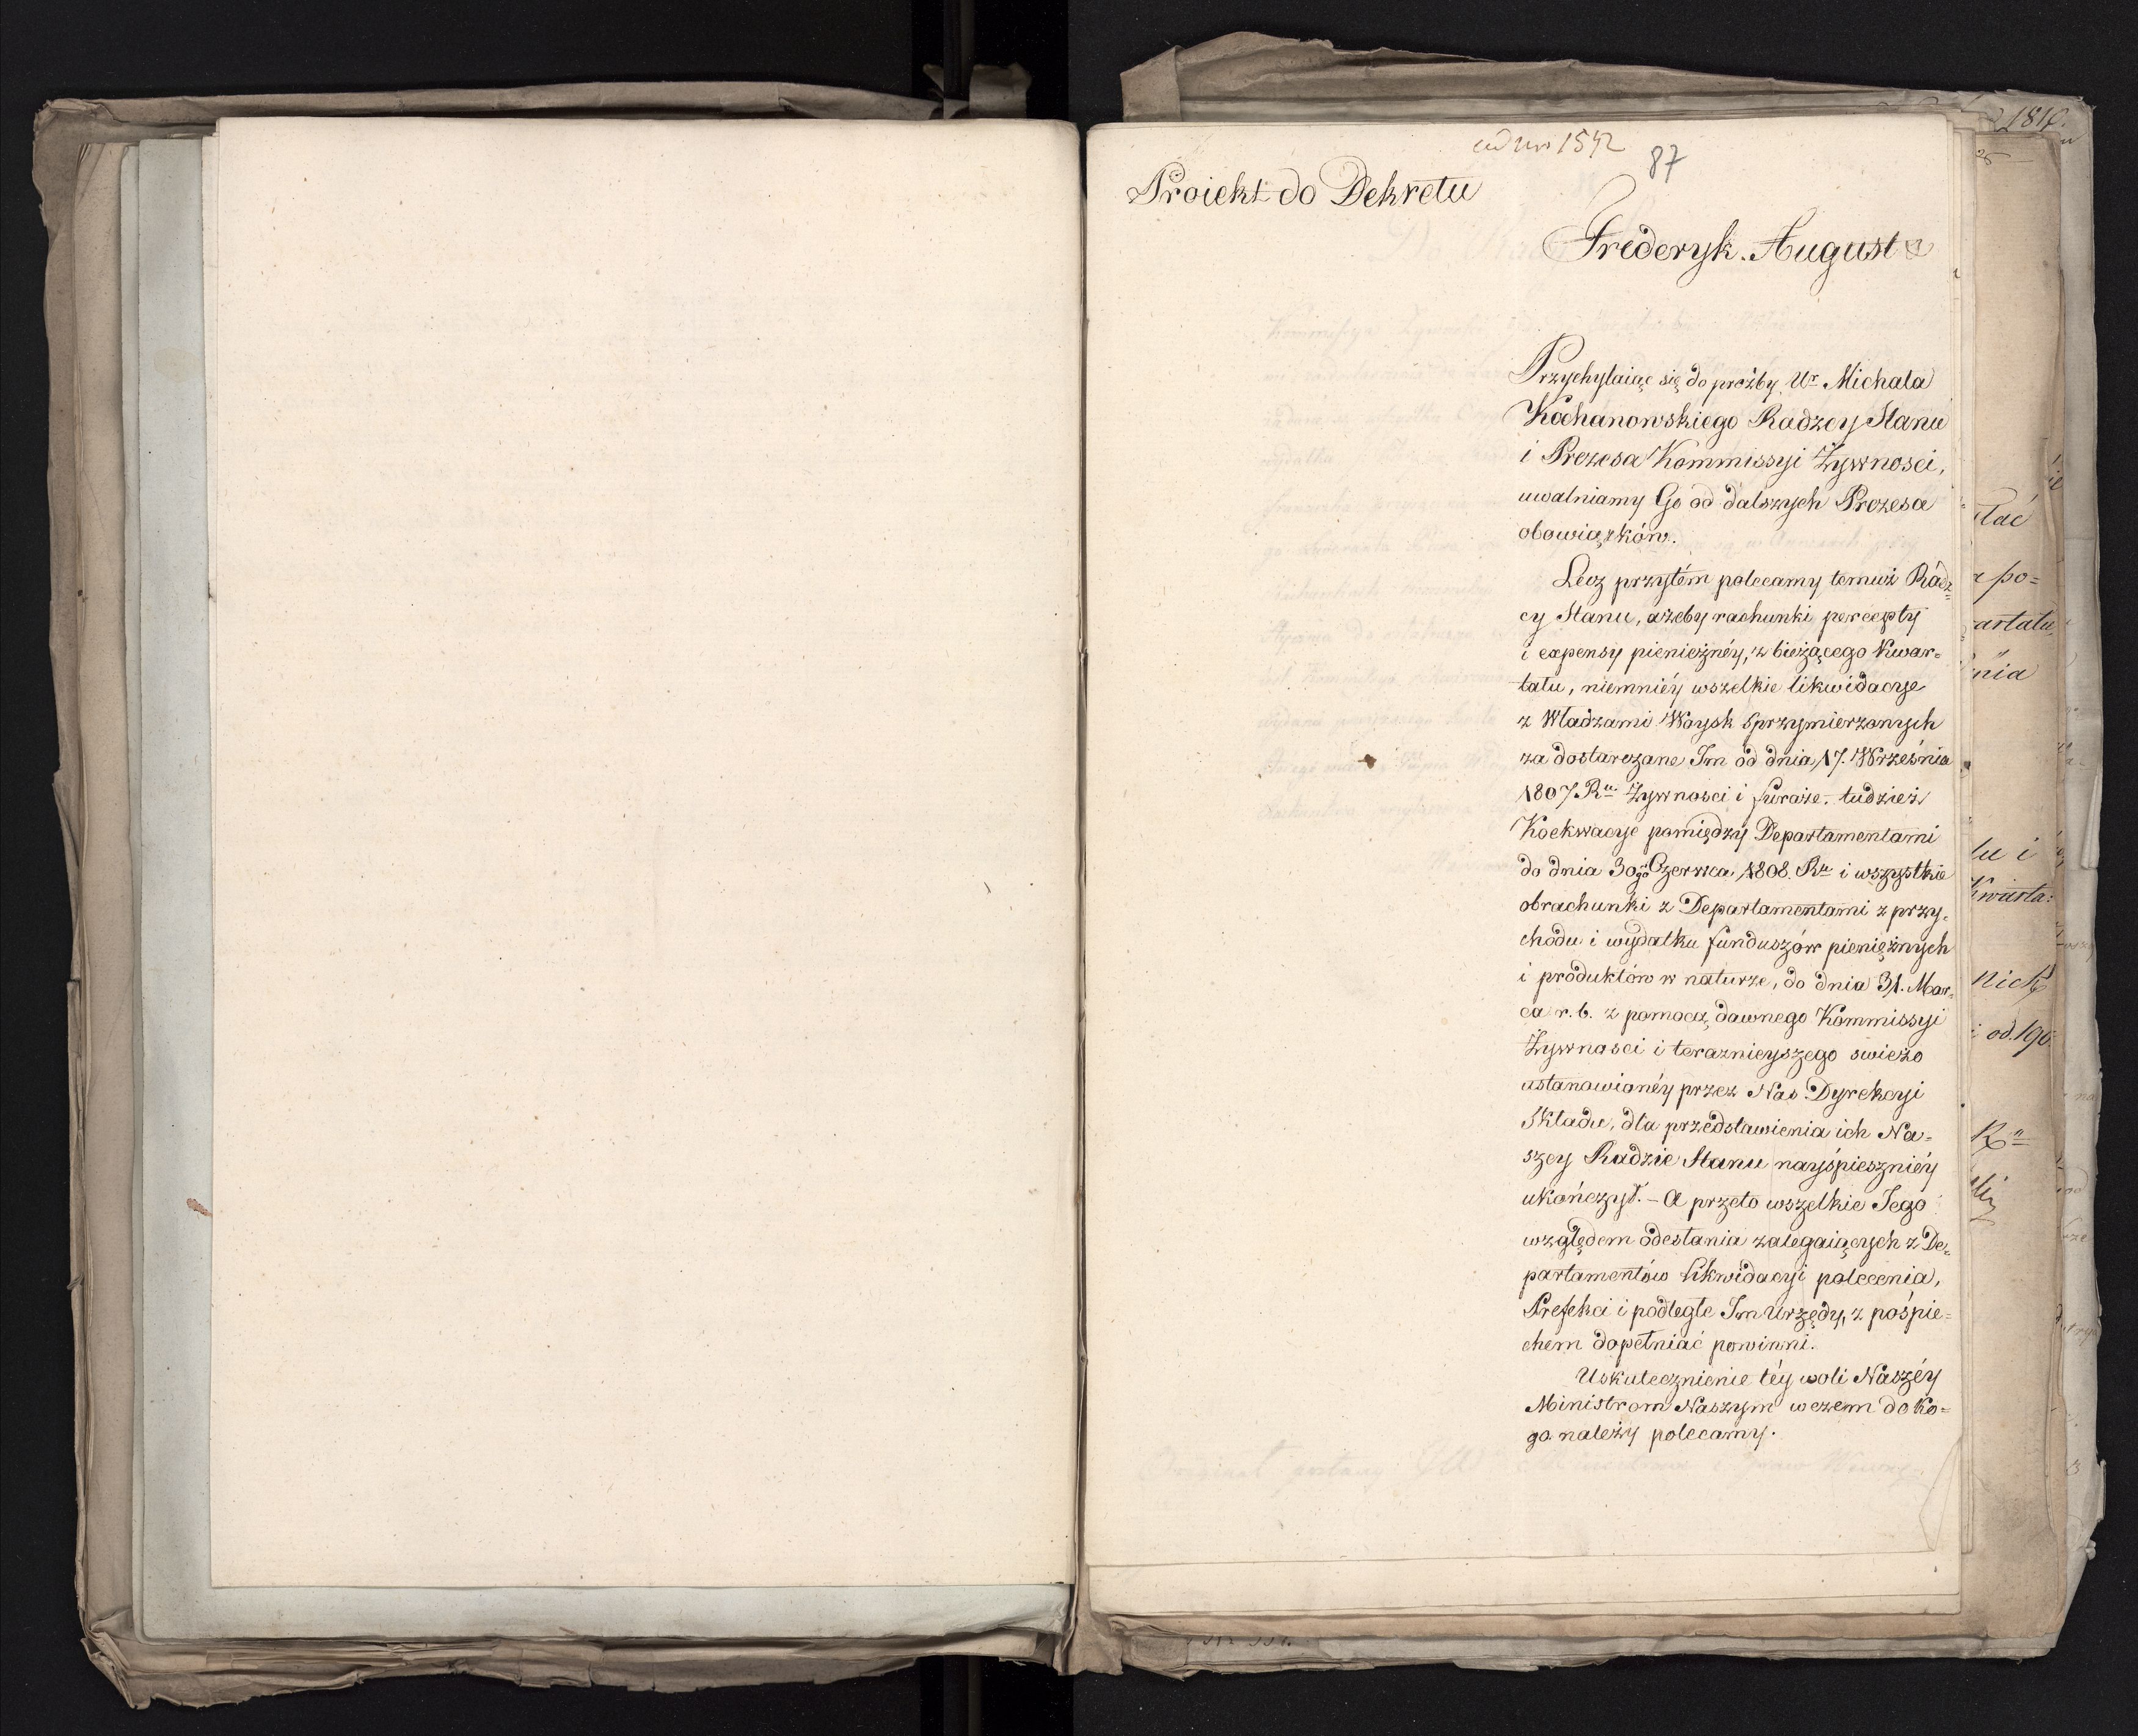 ad Nro 1542
87
Proiekt do Dekretu
Frederyk August &
Przychylaiąc się do prożby Ur Michała
Kochanowskiego Radzcy Stanu
i Prezesa Kommissyi Żywnosci,
uwalniamy Go od dalszych Prezesa
obowiązków.
Lecz przytém polecamy temuż Radz=
cy Stanu, ażeby rachunki percepty
i expensy pieniężnéy, z bieżącego Kwar=
tału, niemniéy wszelkie likwidacye
z Władzami Woysk sprzymierzonych
za dostarczane Im od dnia 17. Września
1807 Ru Żywnosci i furaże, tudzież
Koekwacye pomiędzy Departamentami
do dnia 30go Czerwca 1808 Ru i wszystkie
obrachunki z Departamentami z przy=
chodu i wydatku funduszów pieniężnych
i produktów w naturze, do dnia 31. Mar=
ca r. b. z pomocą dawnego Kommissyi
Żywnosci i teraznieyszego swieżo
ustanowionéy przez Nas Dyrekcyi
Składu, dla przedstawienia ich Na=
szey Radzie Stanu nayśpieszniéy
ukończył. – A przeto wszelkie Iego
względem odesłania zalegaiących z De=
partamentów likwidacyi polecenia,
Prefekci i podległe Im Urzędy, z pośpie=
chem dopełniać powinni.
Uskutecznienie téy woli Naszéy
Ministrom Naszym w czem do Ko=
go należy polecamy.
1810.
łać
a po=
artału,
nia
łu i
Kwarta=
nich
i od. 190
Ru